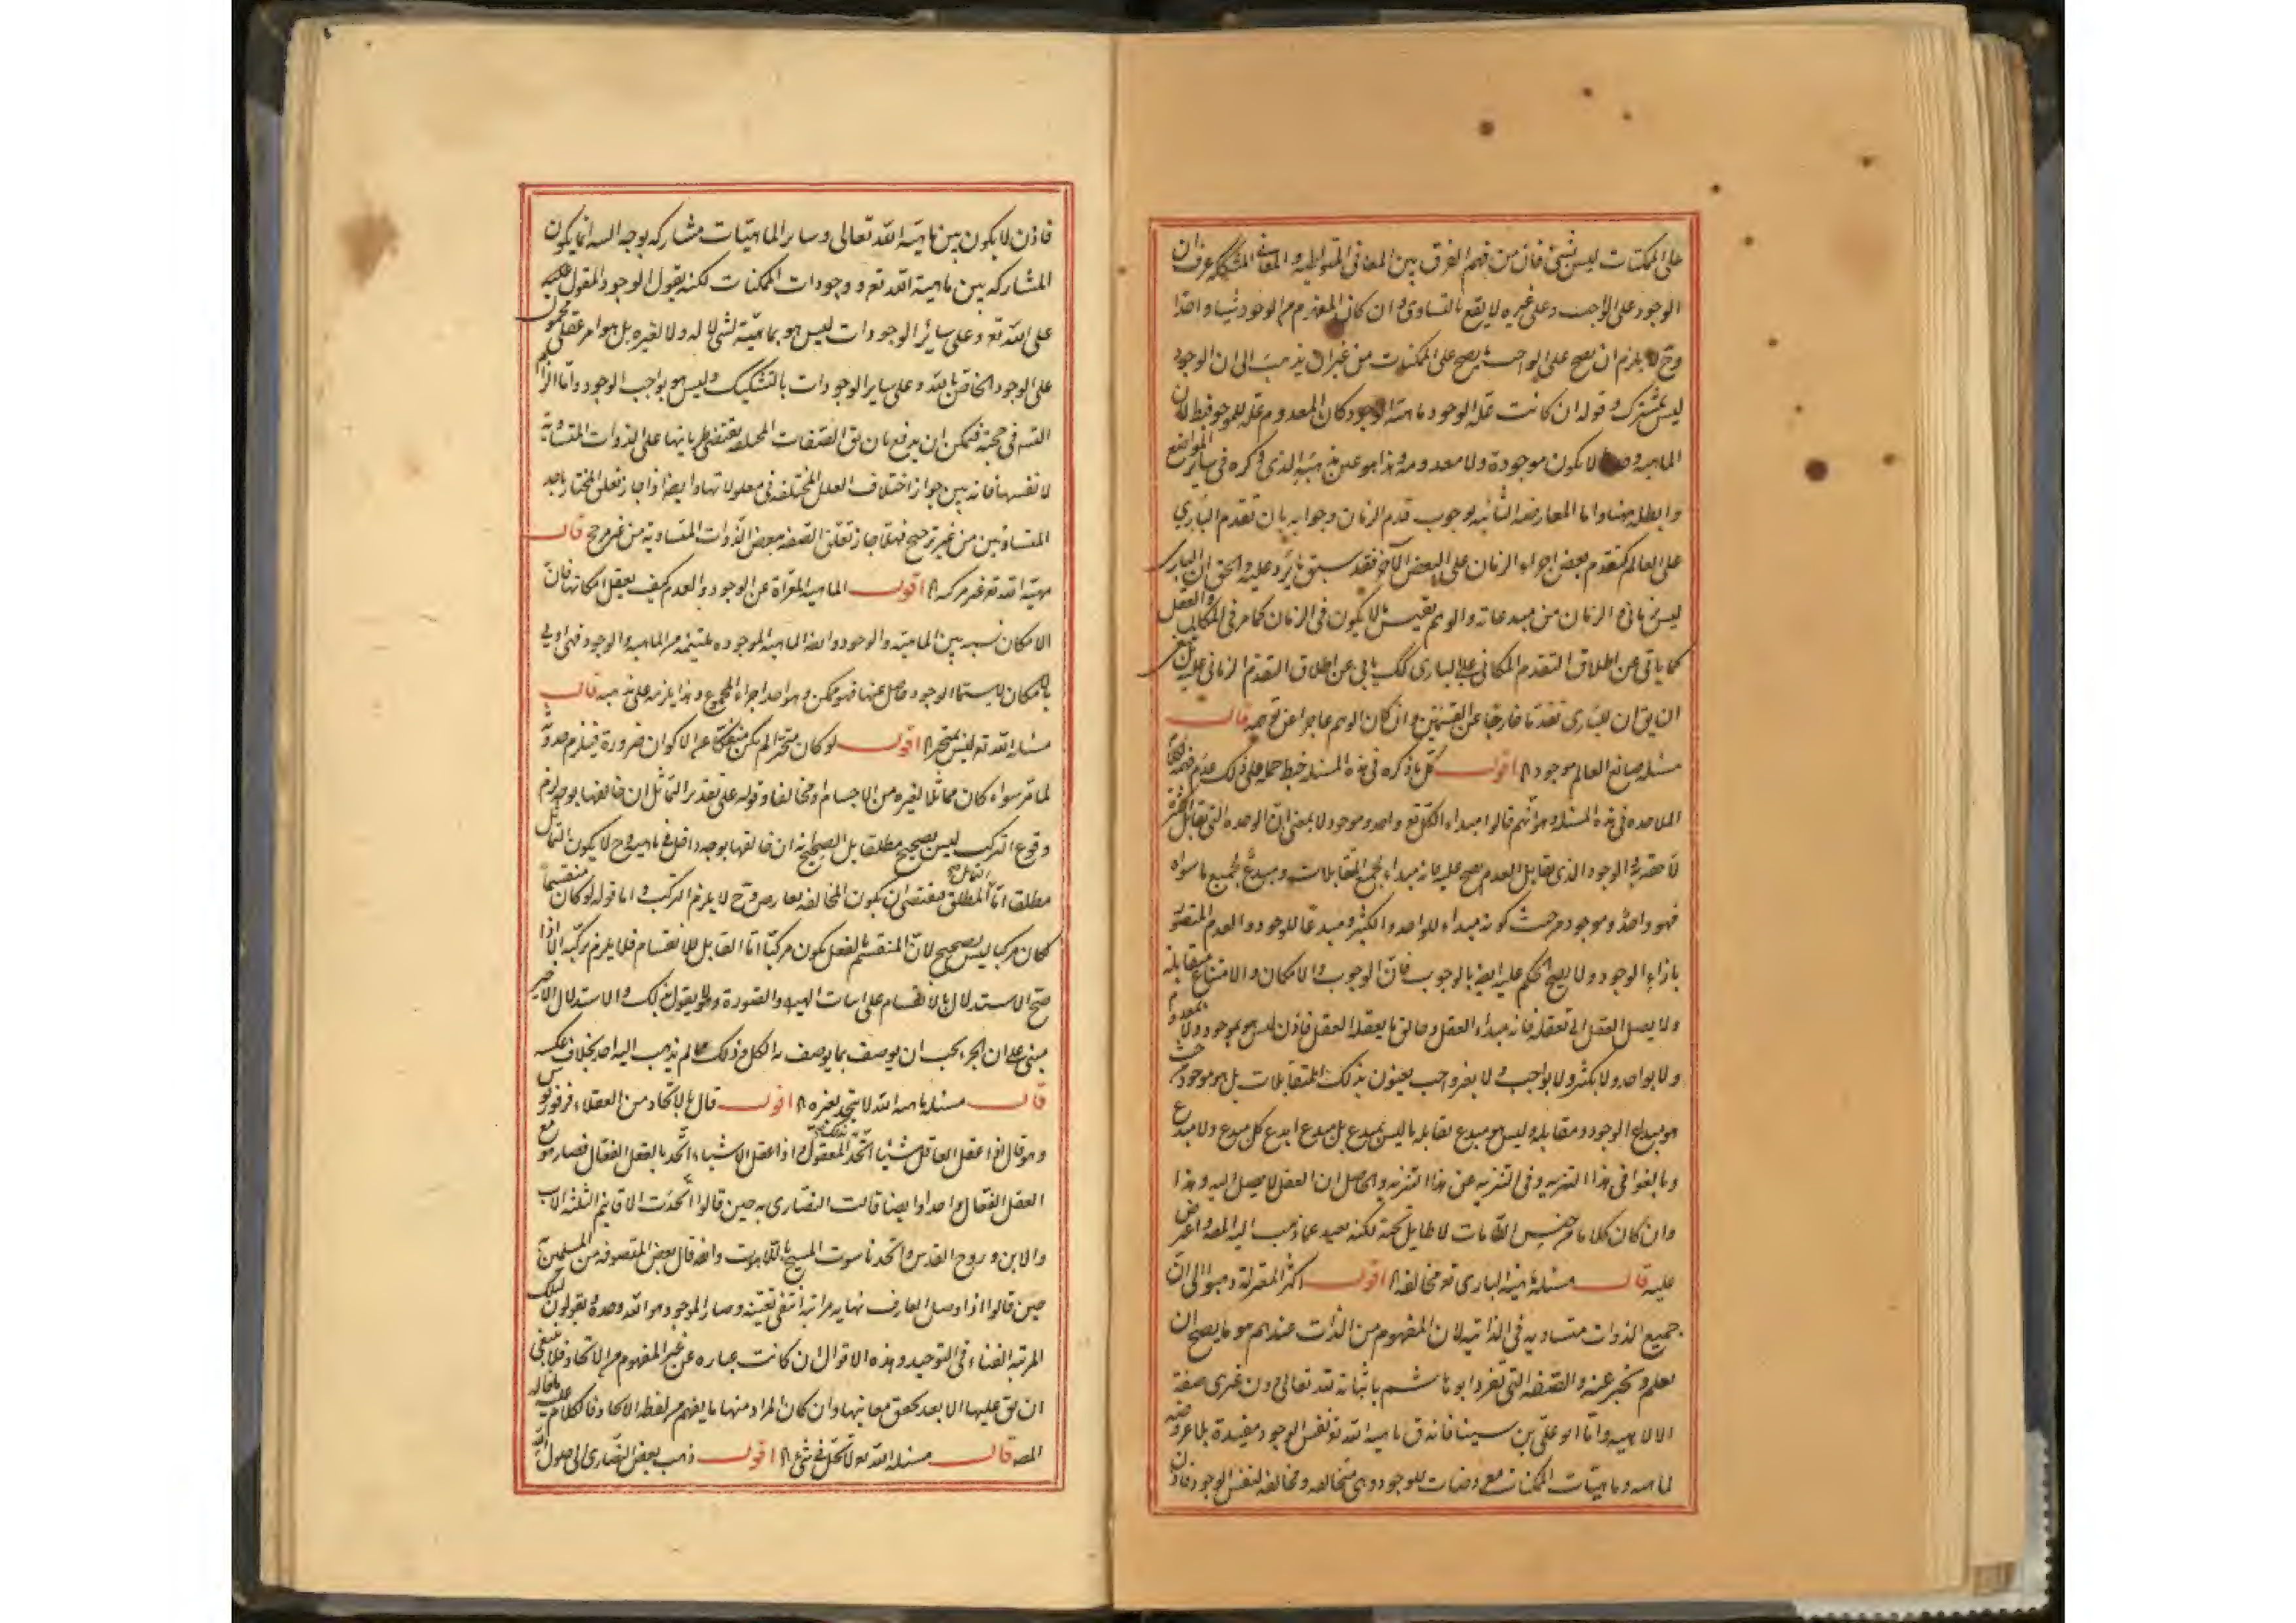 على الممكنات ليس بشئ فان من فهم الفرق بين المعانى المتواطية والمعانى المشككة عرف ان
الوجود على الواجب وعلى غيره لا يقع بالتساوى وان كان المفهوم من الوجود شيئا واحدا
وح لا يلزم ان يصح على الواجب ما يصح على الممكنات من غير ان يذهب الى ان الوجود
ليس بمشترك وقوله ان كانت علة الوجود ماهية الوجود كان المعدوم علة للموجود فباطل لان
الماهية وحدها لا يكون موجودة ولا معدومة وهذا هو عين مذهبه الذى ذكره فى ساير المواضع
وابطله هنا واما المعارضة الثانية بوجوب قدم الزمان وجوابه بان تقدم البارى
على العالم كتقدم بعض اجزاء الزمان على البعض الآخر فقد سبق ما يرد عليه والحق ان البارى
ليس بزمانى والزمان من مبدعاته والوهم يقيس ما لا يكون فى الزمان كما مر فى المكان والعقل
كما يابى عن اطلاق التقدم المكانى على البارى كك يابى عن اطلاق التقدم الزمانى عليه بل ينبغى
ان يق ان للبارى تقدما خارجا عن القسمين وان كان الوهم عاجزا عن توهمه قال
مسئلة صانع العالم موجود اه اقول كل ما ذكره فى هذه المسئلة خبط حمله على ذلك عدم فهم كلام
الملاحدة فى هذه المسئلة وهو انهم قالوا مبداء الكل تع واحد وموجود لا بمعنى ان الوحدة التى تقابل الكثرة
لاحقة به والوجود الذى يقابل العدم يصح عليه فانه مبداء لجميع المتقابلات ومبدع لجميع ما سواه
فهو واحد وموجود من حيث كونه مبداء للواحد والكثير ومبدعا للوجود والعدم المتصور
بازاء الوجود ولا يصح الحكم عليه ايضا بالوجوب فان الوجوب والامكان والامتناع متقابلة
ولا يصل العقل الى تعقله فانه مبداء العقل وخالق ما يعقله العقل فاذن ليس هو بموجود ولا بمعدوم
ولا بواحد ولا بكثير ولا بواجب ولا بغير واجب يعنون بذلك المتقابلات بل هو موجود من حيث
هو مبدع الوجود ومقابله وليس هو مبدع تقابله ما ليس بمبدع بل مبدع ابدع كل مبدع ولا مبدع
وبالغوا فى هذا التنزيه وفى التنزيه عن هذا التنزيه والحاصل ان العقل لا يصل اليه وهذا
وان كان كلاما من جنس الطامات لا طايل تحته لكنه بعيد عما ذهب اليه المصـ واعترض
عليه قال مسئلة ماهية البارى تع مخالفة اه اقول اكثر المعتزلة ذهبوا الى ان
جميع الذوات متساوية فى الذاتية لان المفهوم من الذات عندهم هو ما يصح ان
يعلم ويخبر عنه والصفة التى تفرد ابو هاشم باثباته لله تعالى دون غيره صفة
الالاهية واما ابو على بن سينا فانه ق ماهية الله تع نفس الوجود مقيدة بلا عروضه
لماهية وماهيات الممكنات معروضات للوجود وهى متخالفة ومخالفة لنفس الوجود فاذن
فاذن لا يكون بين ماهية الله تعالى وساير الماهيات مشاركة بوجه البتة انما يكون
المشاركة بين ماهية الله تع ووجودات الممكنات لكنه يقول الوجود المقول عليه
على الله تع وعلى ساير الوجودات ليس هو بماهية لشئ لا له ولا لغيره بل هو امر عقلى محمول
على الوجود الخاص بالله وعلى ساير الوجودات بالتشكيك وليس هو بواجب الوجود واما الزام
التسـ فى حجته فيمكن ان يدفع بان يق الصفات المختلفة يقتضى طريانها على الذوات المتساوية
لا نفسها فانه يبين جواز اختلاف العلل المختلفة فى معلولاتها وايضا اذا جاز تعلق المختار باحد
المتساويين من غير ترجيح فهلا جاز تعلق الصفة ببعض الذوات المتساوية من غير مرجح قال
مهية الله تع غير مركبة اه اقول الماهية المعراة عن الوجود والعدم كيف يعقل امكانها فان
الامكان نسبة بين الماهية والوجود وايضا الماهية الموجودة ملتئمة من الماهية والوجود فهى اولى
بالامكان لا سيما الوجود حاصل عنها فهو ممكن وهو احد اجزاء المجموع وهذا يلزمه على مذهبه قال
مسئلة الله تع ليس بمتحيز اه اقول لو كان متحيزا لم يكن منفكا عن الاكوان ضرورة فيلزم حدوثه
لما مر سواء كان مماثلا لغيره من الاجسام او مخالفا وقوله على تقدير التماثل ان خالفها بوجه لزم
وقوع التركيب ليس بصحيح مطلقا بل الصحيح انه ان خالفها بوجه داخل فى ماهيته وح لا يكون التماثل
مطلقا اما التماثل المطلق فيقتضى ان يكون المخالفة بعارض وح لا يلزم التركيب واما قوله لو كان منقسما
لكان مركبا ليس بصحيح لان المنقسم بالفعل يكون مركبا اما القابل للانقسام فلا يلزم تركبه الا اذا
صح الاستدلال بالانقسام على اثبات الهيولى والصورة وهو لا يقول بذلك والاستدلال الاخير
مبنى على ان الجزء يجب ان يوصف بما يوصف به الكل وذلك مما لم يذهب اليه احد بخلاف عكسه
قال مسئلة ماهية الله لا يتحد بغيره اه اقول قال بالاتحاد من العقلاء فرفوريوس
وهو قال اذا عقل العاقل شيئا اتحد بالمعقول واذا عقل الاشياء اتحد بالعقل الفعال فصار هو مع
العقل الفعال واحدا وايضا قالت النصارى به حين قالوا اتحدت الاقانيم الثلثة الاب
والابن وروح القدس واتحد ناسوت المسيح باللاهوت وايضا قال بعض المتصوفة من المسلمين
حين قالوا اذا وصل العارف نهاية مراتبه انتفى تعينه وصار الموجود هو الله وحده يقولون لتلك
المرتبة الفناء فى التوحيد وهذه الاقوال ان كانت عبارة عن غير المفهوم من الاتحاد فلا ينبغى
ان يق عليها الا بعد تحقق معانيها وان كان المراد منها ما يفهم من لفظة الاتحاد فالكلام عليه ما قاله
المصـ قال مسئلة الله تع لا يحل فى شئ اه اقول ذهب بعض النصارى الى حلول الله